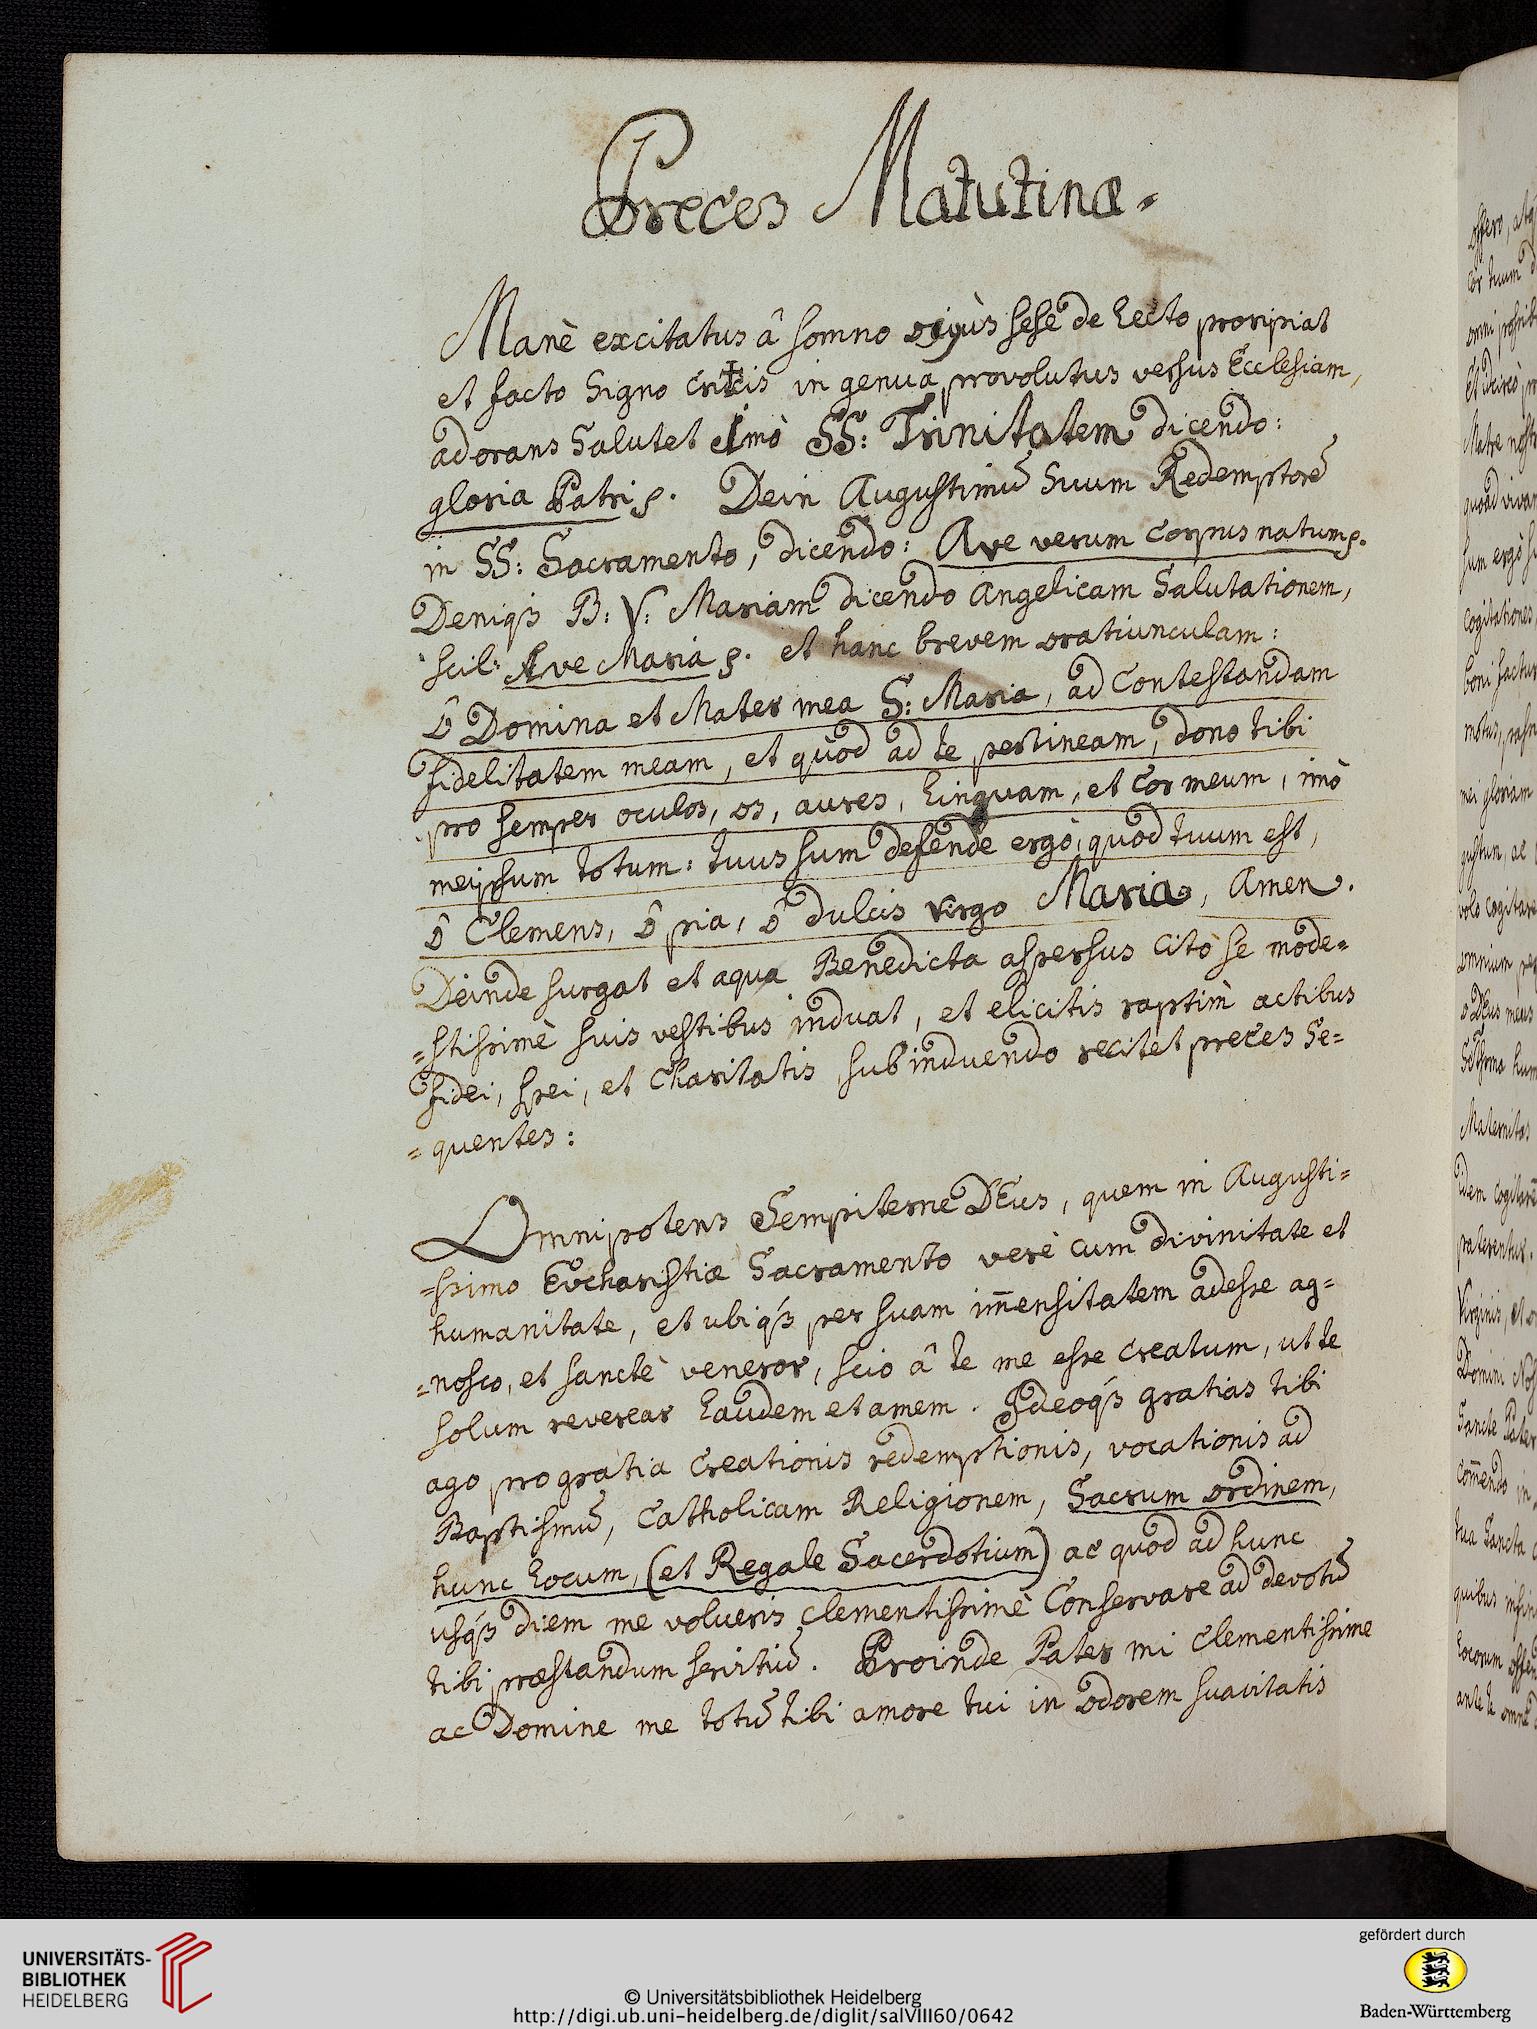 Preces Matutinæ.
Manè excitatus â somno ocyùs sese de lecto proripiat
et facto Signo crucis in genua provolutus versus Ecclesiam,
adorans Salutet Imò SS: Trinitatem dicendo:
gloria Patri p. Dein Augustimū Suum Redemptorē
in SS: Sacramento, dicendo: Ave verum Corpus natum p.
Deniqꝫ B: V: Mariam dicendo Angelicam Salutationem,
scil: Ave Maria p. et hanc brevem oratiunculam:
ô Domina et Mater mea S: Maria, ad Contestandam
fidelitatem meam, et quòd ad te pertineam, dono tibi
pro semper oculos, os, aures, linguam, et Cor meum, imò
meipsum totum: tuus sum defende ergò, quod tuum est,
ô Clemens, ô pia, ô dulcis Virgo Maria, Amen.
Deinde surgat et aqua Benedicta aspersus citò se mode=
=stissimè suis vestibus induat, et elicitis raptim actibus
fidei, spei, et Charitatis, sub induendo recitet preces Se=
=quentes:
Omnipotens Sempiterne DEus, quem in Augusti=
=ssimo Eucharistiæ Sacramento verè cum divinitate et
humanitate, et ubiqꝫ per suam im̄ensitatem adesse ag=
=nosco, et sanctè veneror, scio â te me esse creatum, ut te
solum reverear laudem et amem. Ideoqꝫ gratias tibi
ago pro gratia Creationis redemptionis, vocationis ad
Baptismū, Catholicam Religionem, Sacrum ordinem,
hunc locum, (et Regale Sacerdotium) ac quod ad hunc
usqꝫ diem me volueris clementissimè Conservare ad devotū
tibi præstandum servitiū. Proinde Pater mi Clementissime
ac Domine me totū tibi amore tui in odorem suavitatis
offero, atq
cor tuum
Matre
quoad vivam
sum ergò
cogitationes
boni
motus,
mei gloriam
gustum, ac
volo cogitare
omnium per
ô DEus meus
Maternitas
idem
paterentur.
Virginis, et
Domini
Sancte Pater
com̄endo in
tua Sancta
quibus
locorum
ante te omne
UNIVERSITÄTS-
BIBLIOTHEK
HEIDELBERG
© Universitätsbibliothek Heidelberg
http://digi.ub.uni-heidelberg.de/diglit/salVIII60/0642
gefördert durch
Baden-Württemberg